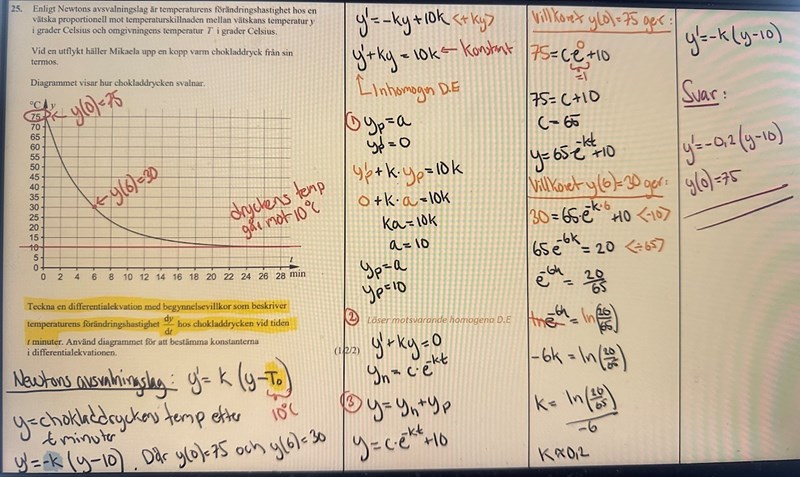 25. Enligt Newtons avsvalningslag är temperaturens förändringshastighet hos en
vätska proportionell mot temperaturskillnaden mellan vätskans temperatur y
i grader Celsius och omgivningens temperatur T i grader Celsius.
Vid en utflykt häller Mikaela upp en kopp varm chokladdryck från sin
termos.
Diagrammet visar hur chokladdrycken svalnar.
°C y
y(0)=75
75
70
65
60
55
50
45
40
35
30
25
20
15
10
5
0
y(6)=30
dryckens temp
går mot 10°C
t
0 2 4 6 8 10 12 14 16 18 20 22 24 26 28 min
Teckna en differentialekvation med begynnelsevillkor som beskriver
temperaturens förändringshastighet dy/dt hos chokladdrycken vid tiden
t minuter. Använd diagrammet för att bestämma konstanterna
i differentialekvationen.
(1/2/2)
Newtons avsvalningslag: y'=k(y-T₀)
10°C
y=chokladdryckens temp efter
t minuter
y'=-k(y-10). Där y(0)=75 och y(6)=30
y'=-ky+10k <+ky>
y'+ky=10k ← Konstant
Inhomogen D.E
① yp=a
y'p=0
y'p+k·yp=10k
0+k·a=10k
ka=10k
a=10
yp=a
yp=10
② Löser motsvarande homogena D.E
y'+ky=0
yh=c·e^-kt
③ y=yh+yp
y=c·e^-kt+10
Villkoret y(0)=75 ger:
75=ce^0+10
=1
75=c+10
c=65
y=65·e^-kt+10
Villkoret y(6)=30 ger:
30=65·e^-k·6+10 <-10>
65e^-6k=20 <÷65>
e^-6k=20/65
ln e^-6k=ln(20/65)
-6k=ln(20/65)
k=ln(20/65)/-6
k≈0,2
y'=-k(y-10)
Svar:
y'=-0,2(y-10)
y(0)=75